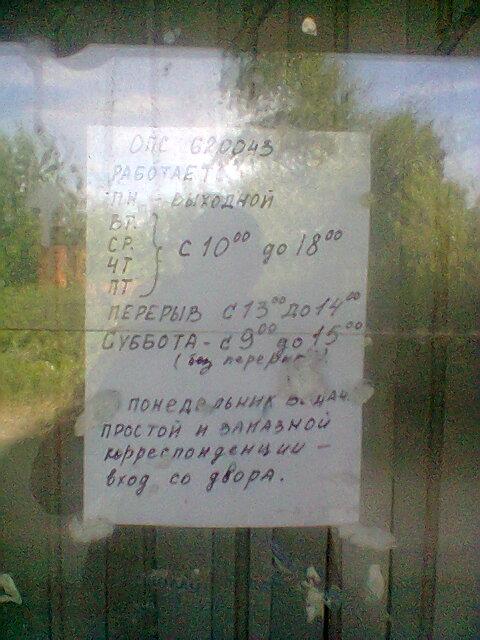 ОПС 620043
РАБОТАЕТ
ПН. - ВЫХОДНОЙ
ВТ.
СР.
ЧТ
ПТ
с 10⁰⁰ до 18⁰⁰
ПЕРЕРЫВ с 13⁰⁰ до 14⁰⁰
СУББОТА - с 9⁰⁰ до 15⁰⁰
(без перерыва)
ПОНЕДЕЛЬНИК
ПРОСТОЙ И ЗАКАЗНОЙ
корреспонденции -
вход со двора.